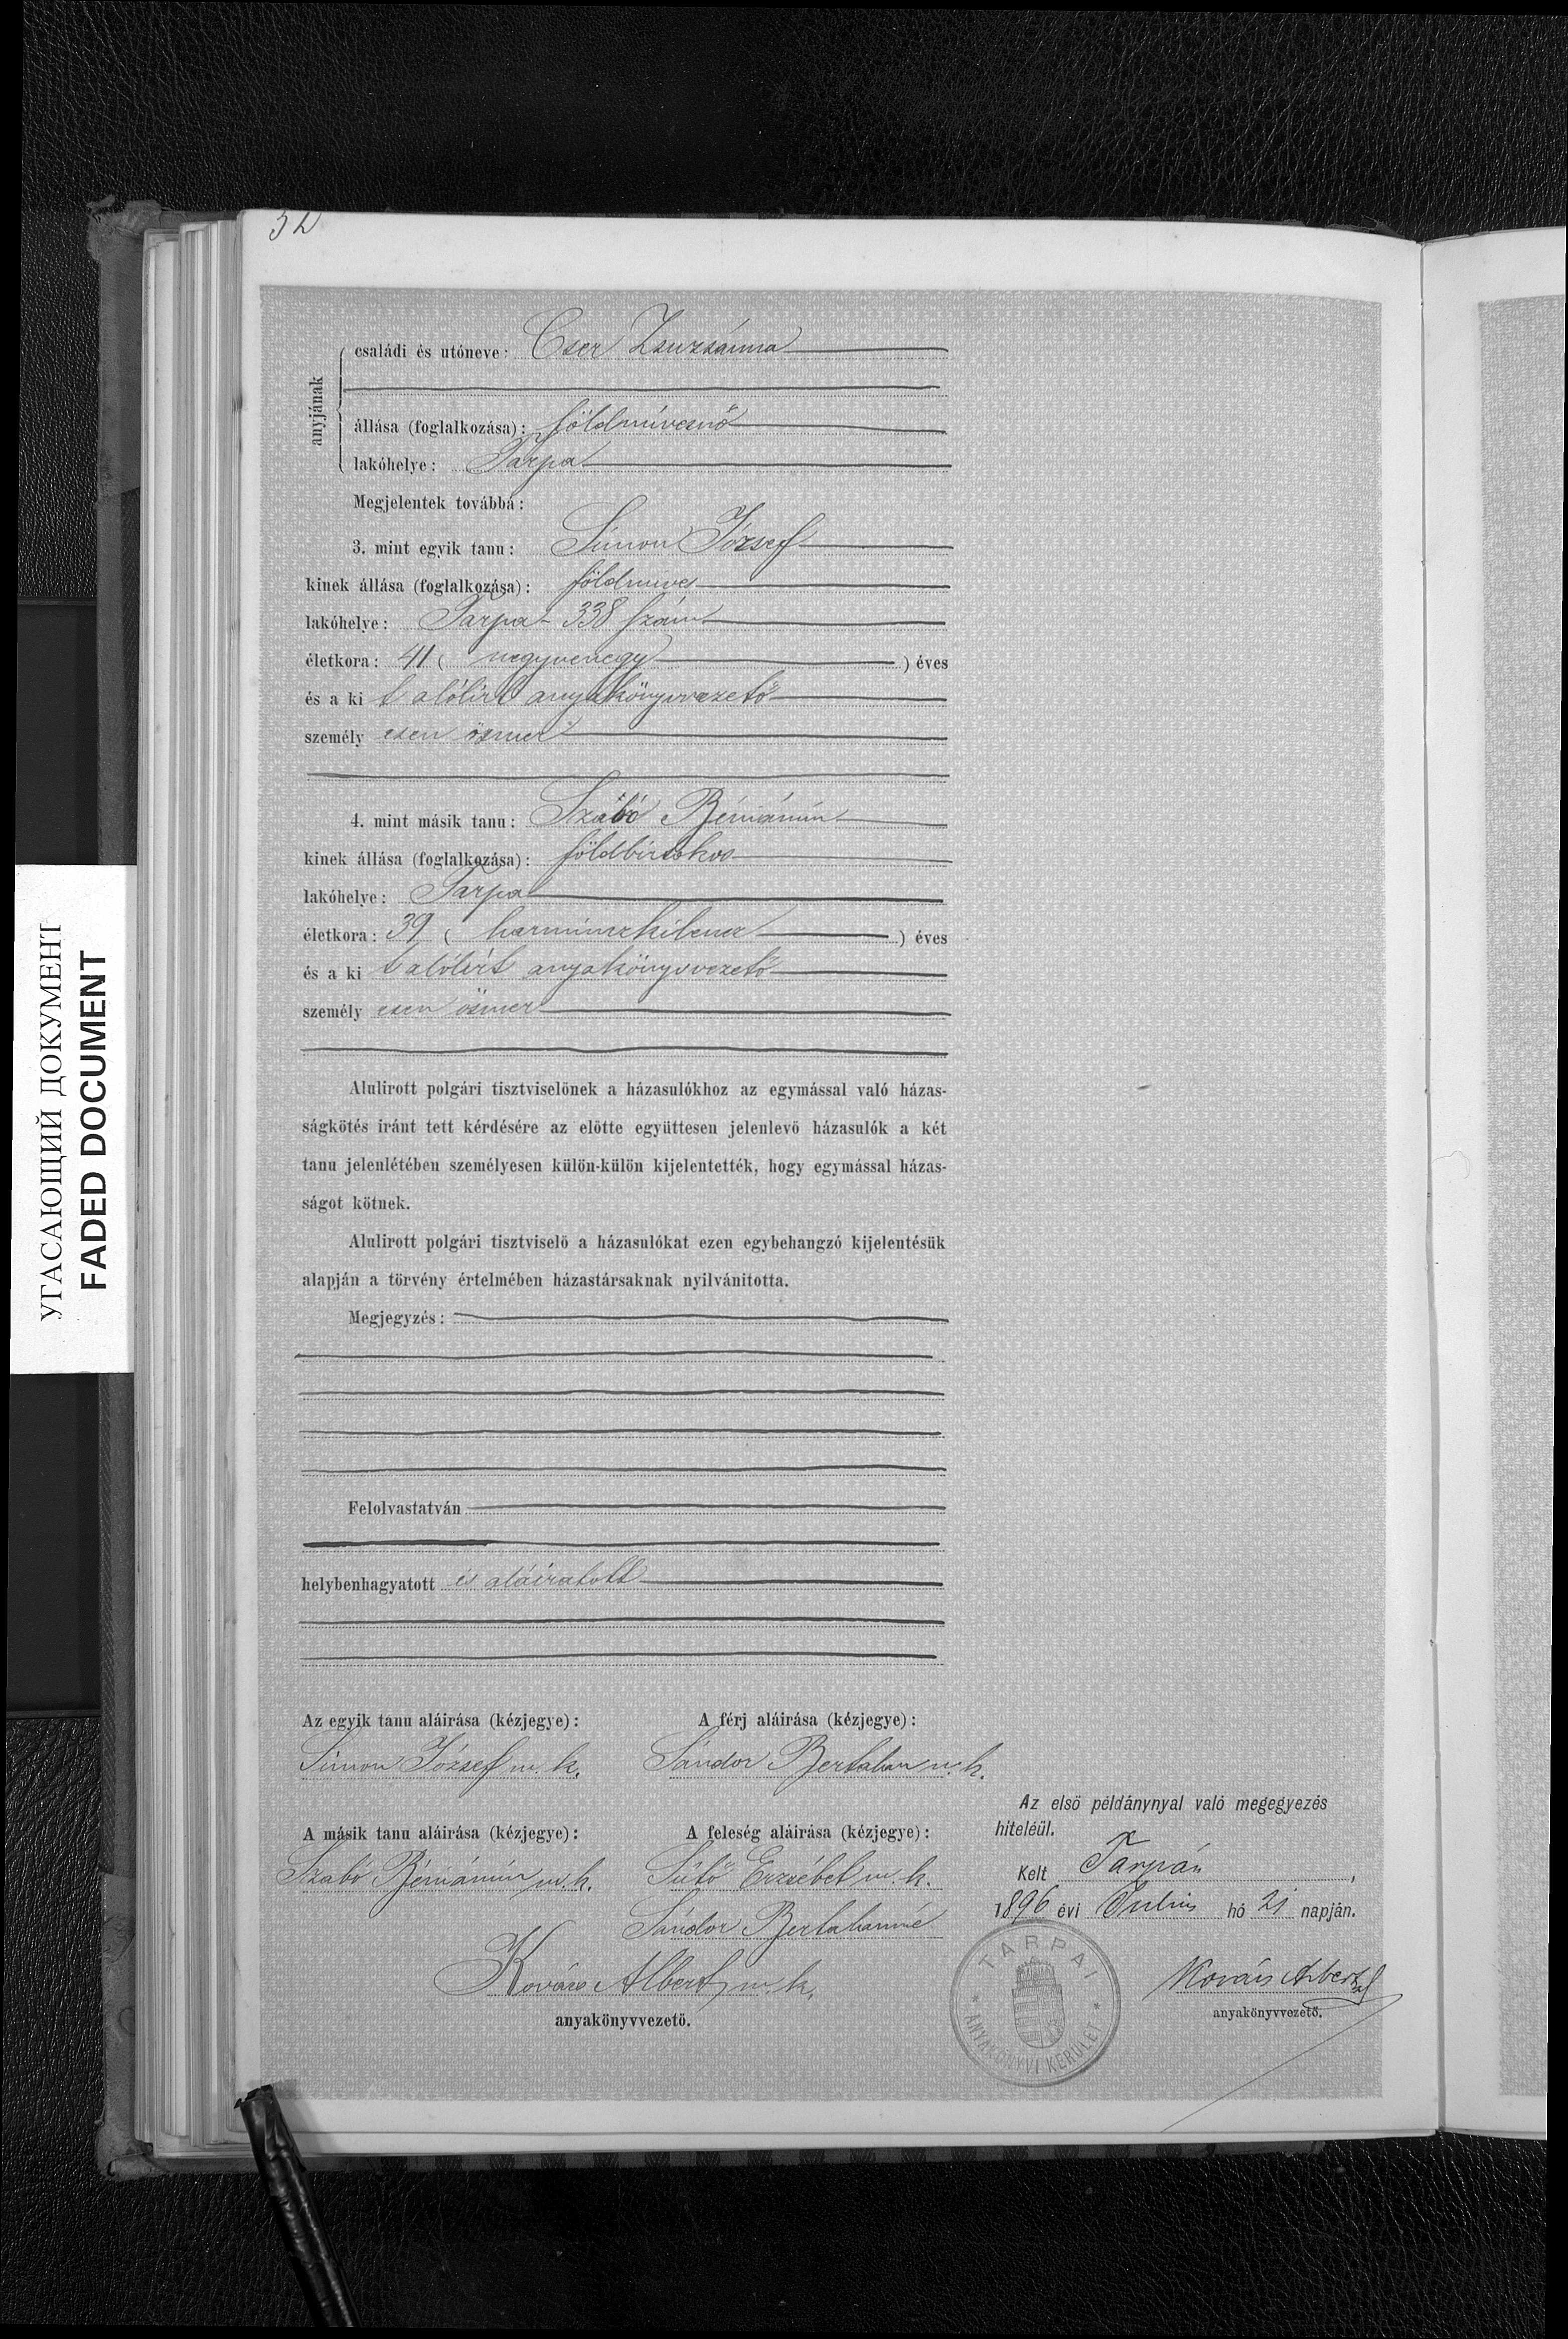 32
anyjának
családi és utóneve: Cser Zsuzsánna
állása (foglalkozása): földmívesnő
lakóhelye: Tarpa
Megjelentek továbbá:
3. mint egyik tanu: Simon József
kinek állása (foglalkozása): földmíves
lakóhelye: Tarpa 338 szám
életkora: 41 ( negyvenegy ) éves
és a ki t alólirt anyakönyvvezető
személy esen ösmer
4. mint másik tanu: Szabó Béniámin
kinek állása (foglalkozása): földbirtokos
lakóhelye: Tarpa
életkora: 39 ( harminczkilencz ) éves
és a ki t alólirt anyakönyvvezető
személy esen ösmer
Alulirott polgári tisztviselönek a házasulókhoz az egymással való házas-
ságkötés iránt tett kérdésére az elötte együttesen jelenlevö házasulók a két
tanu jelenlétében személyesen külön-külön kijelentették, hogy egymással házas-
ságot kötnek.
Alulirott polgári tisztviselö a házasulókat ezen egybehangzó kijelentésük
alapján a törvény értelmében házastársaknak nyilvánitotta.
Megjegyzés:
Felolvastatván
helybenhagyatott és aláiratott
Az egyik tanu aláirása (kézjegye): A férj aláirása (kézjegye):
Simon József m. k. Sándor Bertalan m. k.
A másik tanu aláirása (kézjegye): A feleség aláirása (kézjegye):
Szabó Béniámin m. k. Sütő Erzsébet m. k.
Sándor Bertalanné
Kovács Albert m. k.
anyakönyvvezetö.
Az elsö példánynyal való megegyezés
hiteléül.
Kelt Tarpán,
1896 évi Julius hó 21 napján.
TARPAI
ANYAKÖNYVI KERÜLET
Kovács Albert
anyakönyvvezetö.
УГАСАЮЩИЙ ДОКУМЕНТ
FADED DOCUMENT